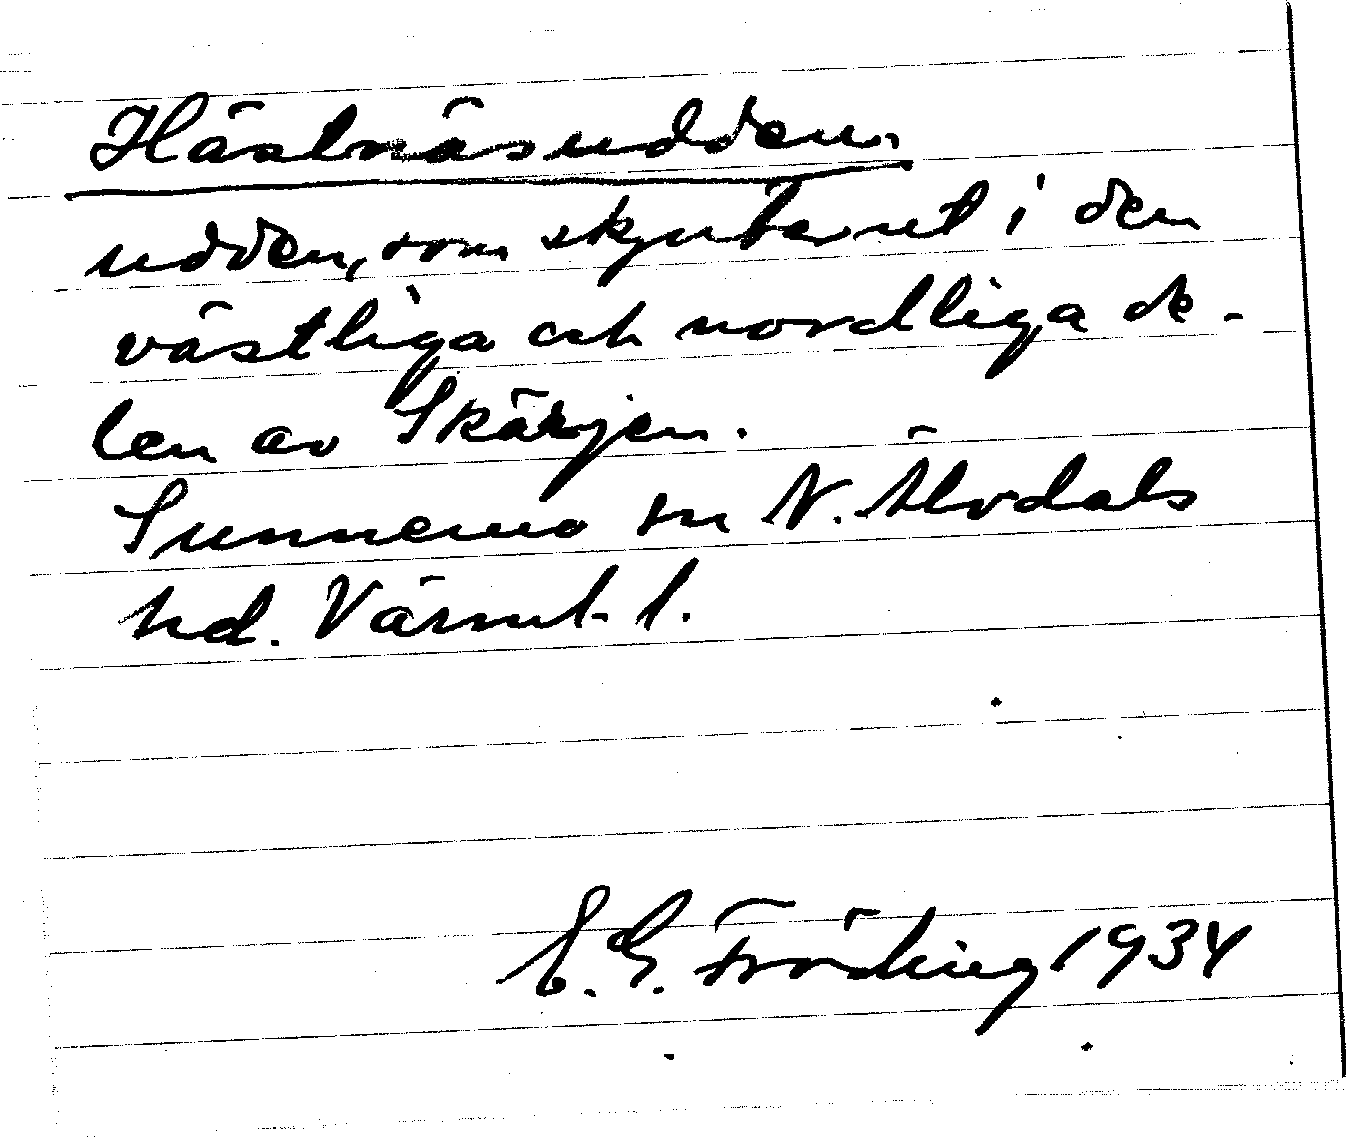 Hästnäsudden.
udden, som skjuter ut i den
västliga och nordliga de-
len av Skärjen.
Sunnemo sn N. Älvdals
hd. Värml. l.
E. G. Fröding 1934